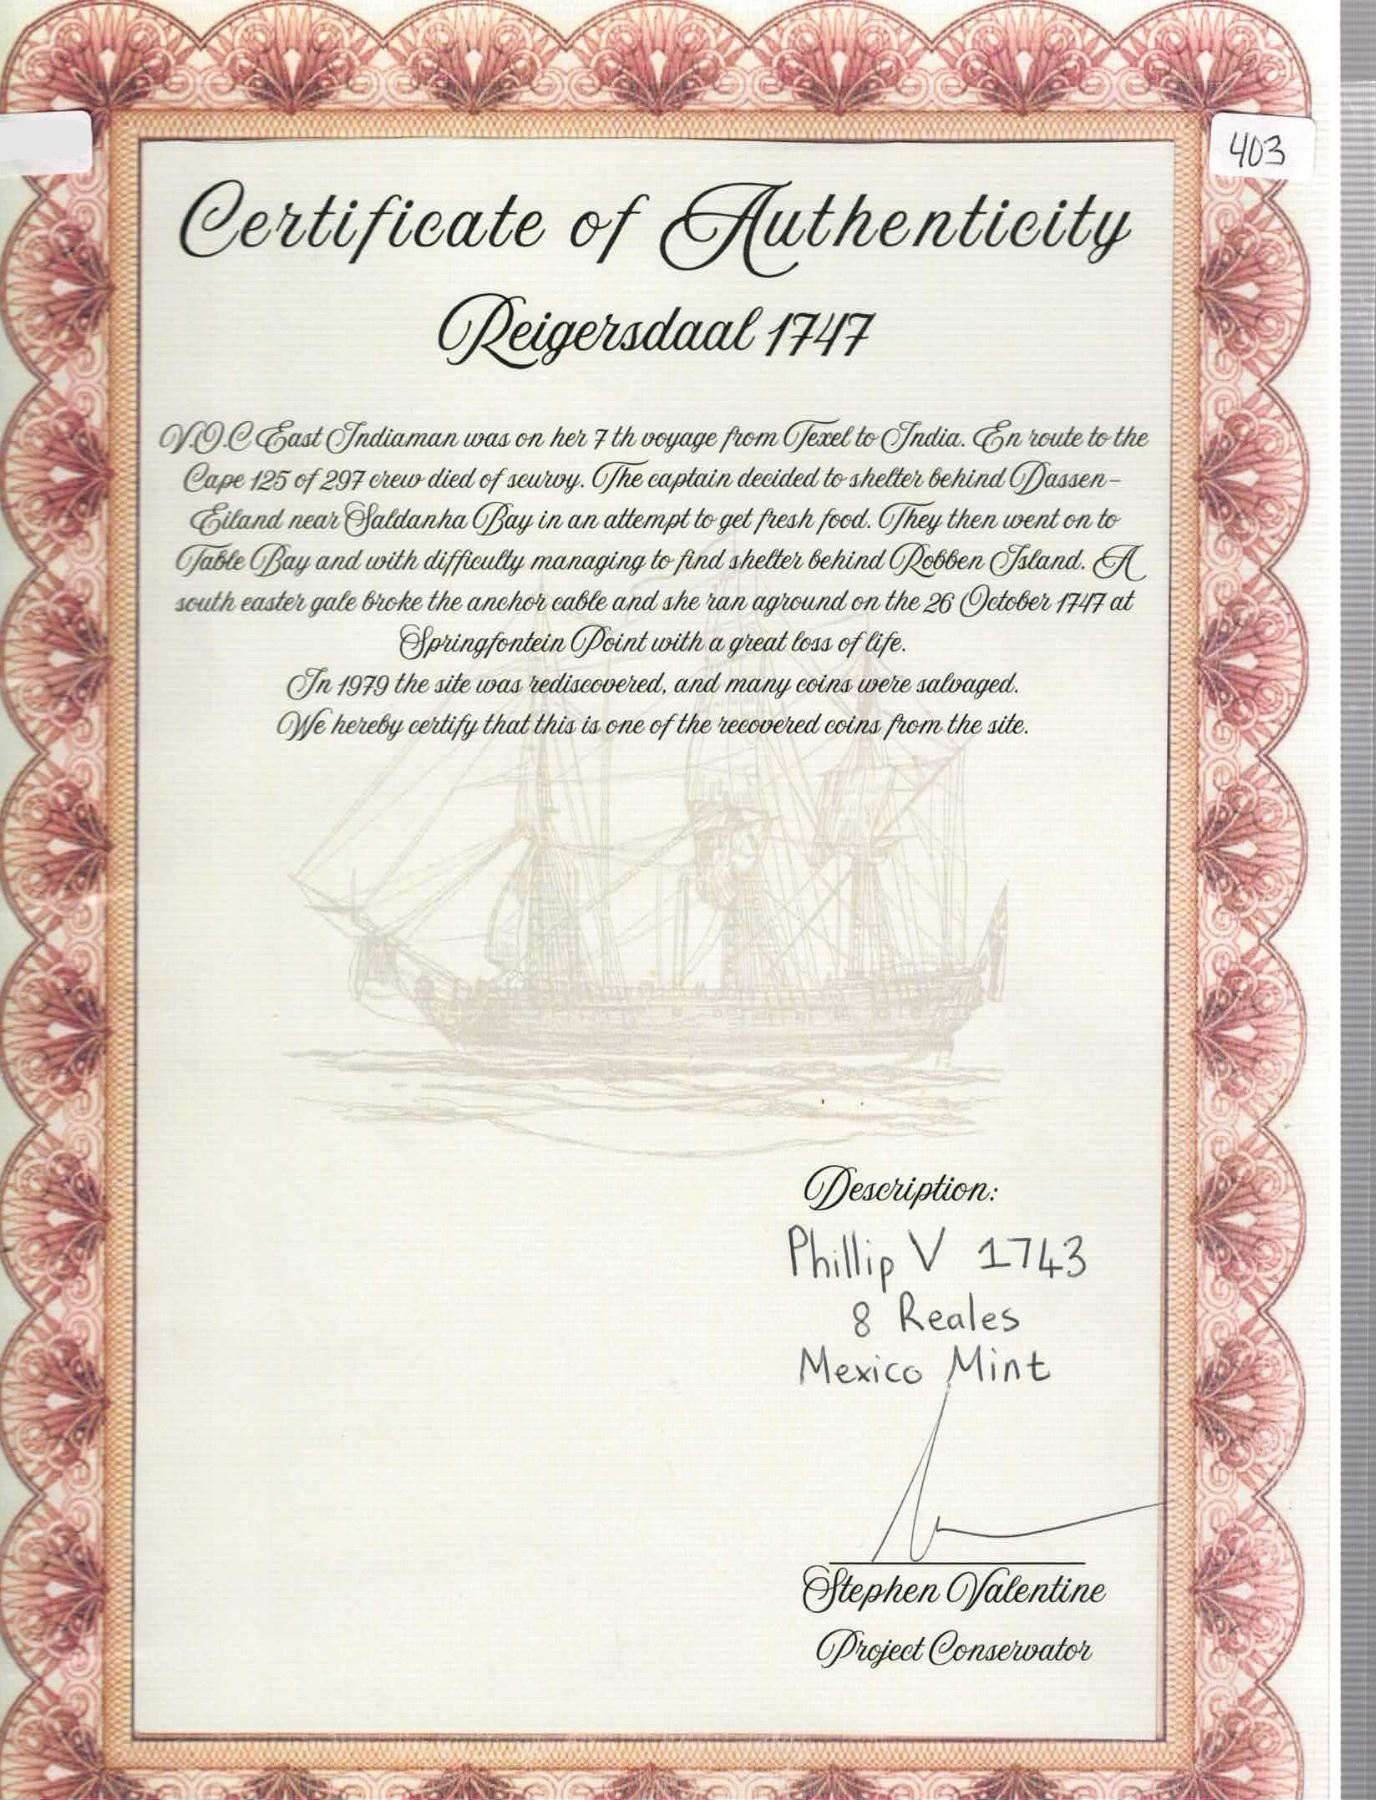 403
Certificate of Authenticity
Reigersdaal 1747
V.O.C East Indiaman was on her 7 th voyage from Texel to India. En route to the
Cape 125 of 297 crew died of scurvy. The captain decided to shelter behind Dassen-
Eiland near Saldanha Bay in an attempt to get fresh food. They then went on to
Table Bay and with difficulty managing to find shelter behind Robben Island. A
south easter gale broke the anchor cable and she ran aground on the 26 October 1747 at
Springfontein Point with a great loss of life.
In 1979 the site was rediscovered, and many coins were salvaged.
We hereby certify that this is one of the recovered coins from the site.
Description:
Phillip V 1743
8 Reales
Mexico Mint
Stephen Valentine
Project Conservator